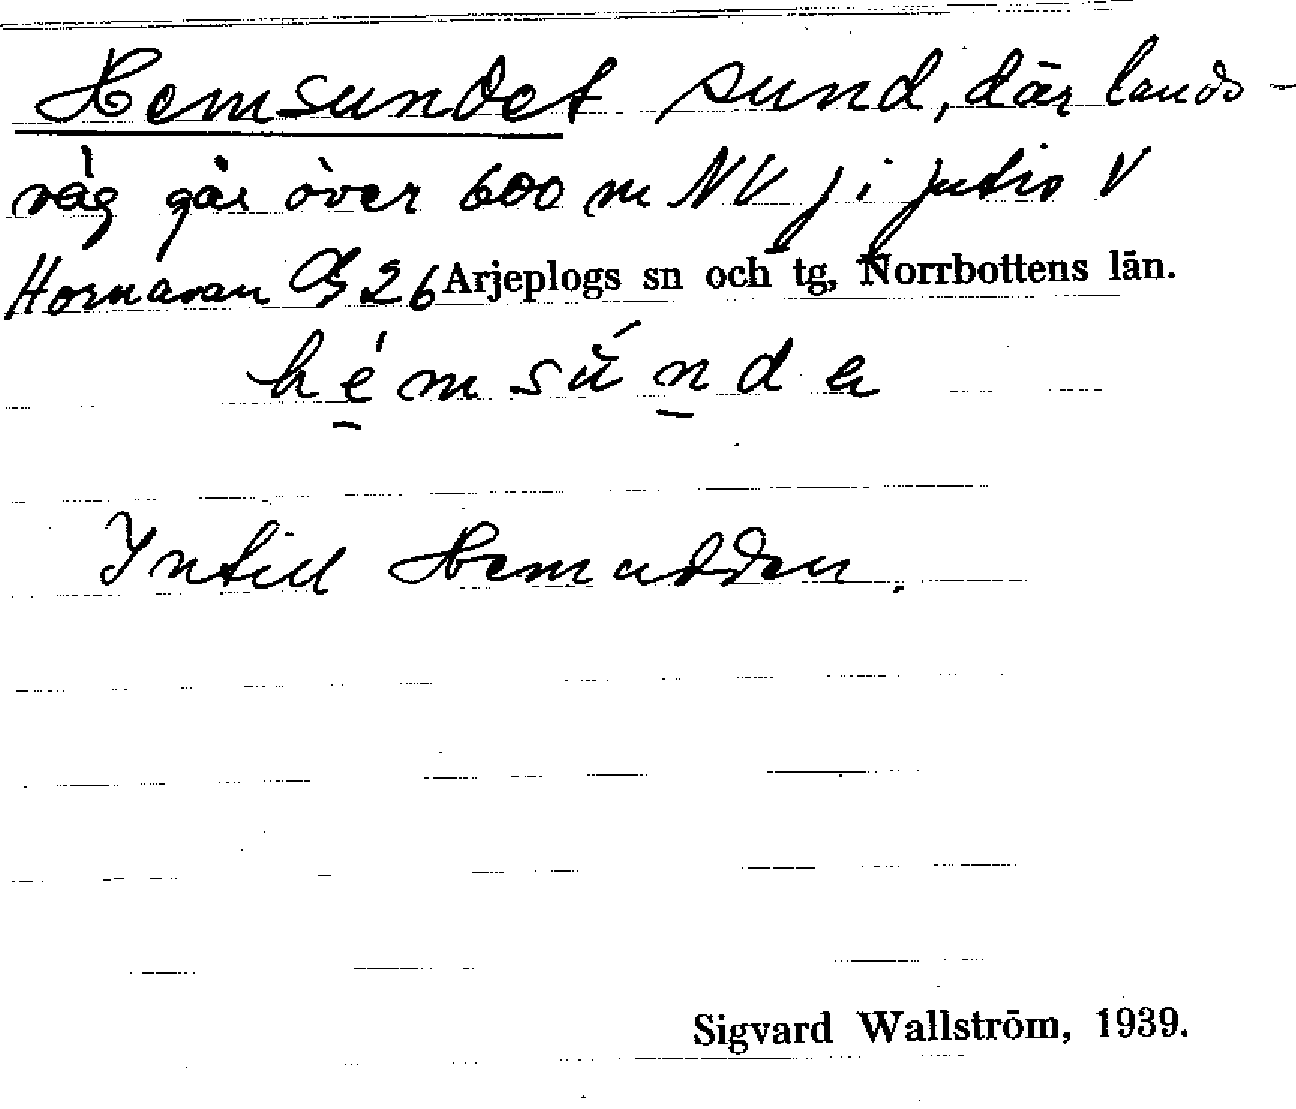 Hemsundet sund, där lands-
väg går över 600 m NV j i Jutis V
Hornavan 26 Arjeplogs sn och tg, Norrbottens län.
hémsúnda
Intill Hemudden.
Sigvard Wallström, 1939.